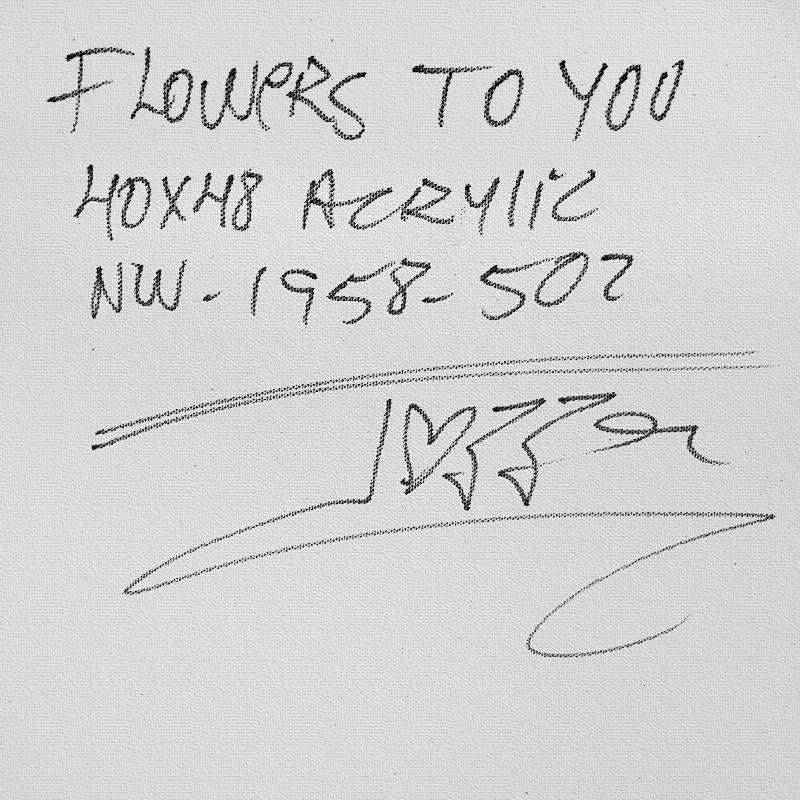 FLOWERS TO YOU
40X48 ACRYLIC
NW-1958-502